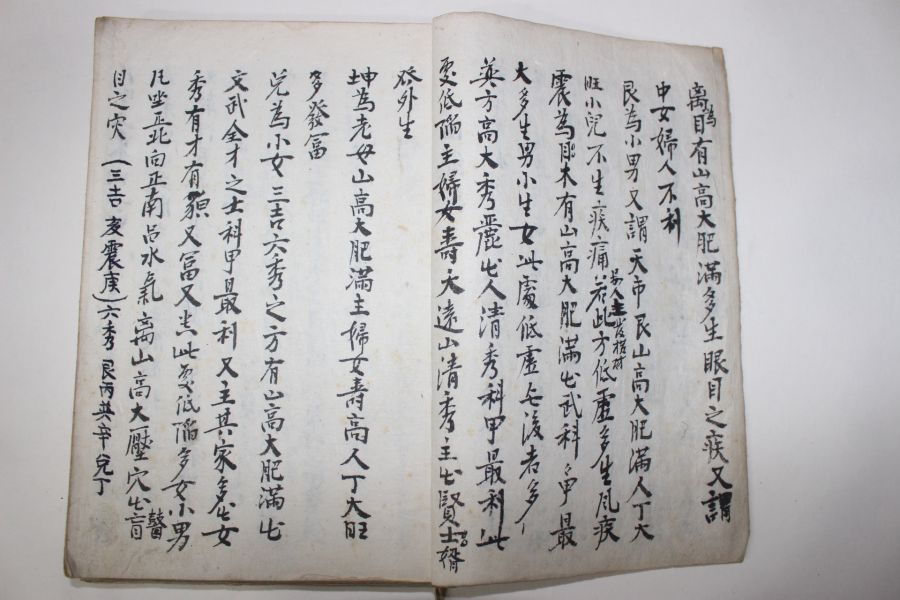 離爲目有山高大肥滿多生眼目之疾又謂
中女婦人不利
艮為小男又謂天市艮山高大肥滿人丁大
旺小兒不生疾痛若此方低虛多生風疾
震為 木有山高大肥滿出武科身最
大多生男小生女此處低虛無後者多
巽方高大秀麗出人淸秀科甲最利此
處低陷主婦女壽夭遠山清秀主出賢士婿
發外生
坤為老母山高大肥滿主婦女壽高人丁大旺
多發冨
兌為小女三吉六秀之方有山高大肥滿出
文武全才之士科甲最利又主其家多出女
秀有才有貌又冨又 此處低陷多女小男
凡坐正北向正南占水氣離山高大壓穴出盲瞽
目之灾 (三吉亥震庚)六秀艮丙巽辛兌丁